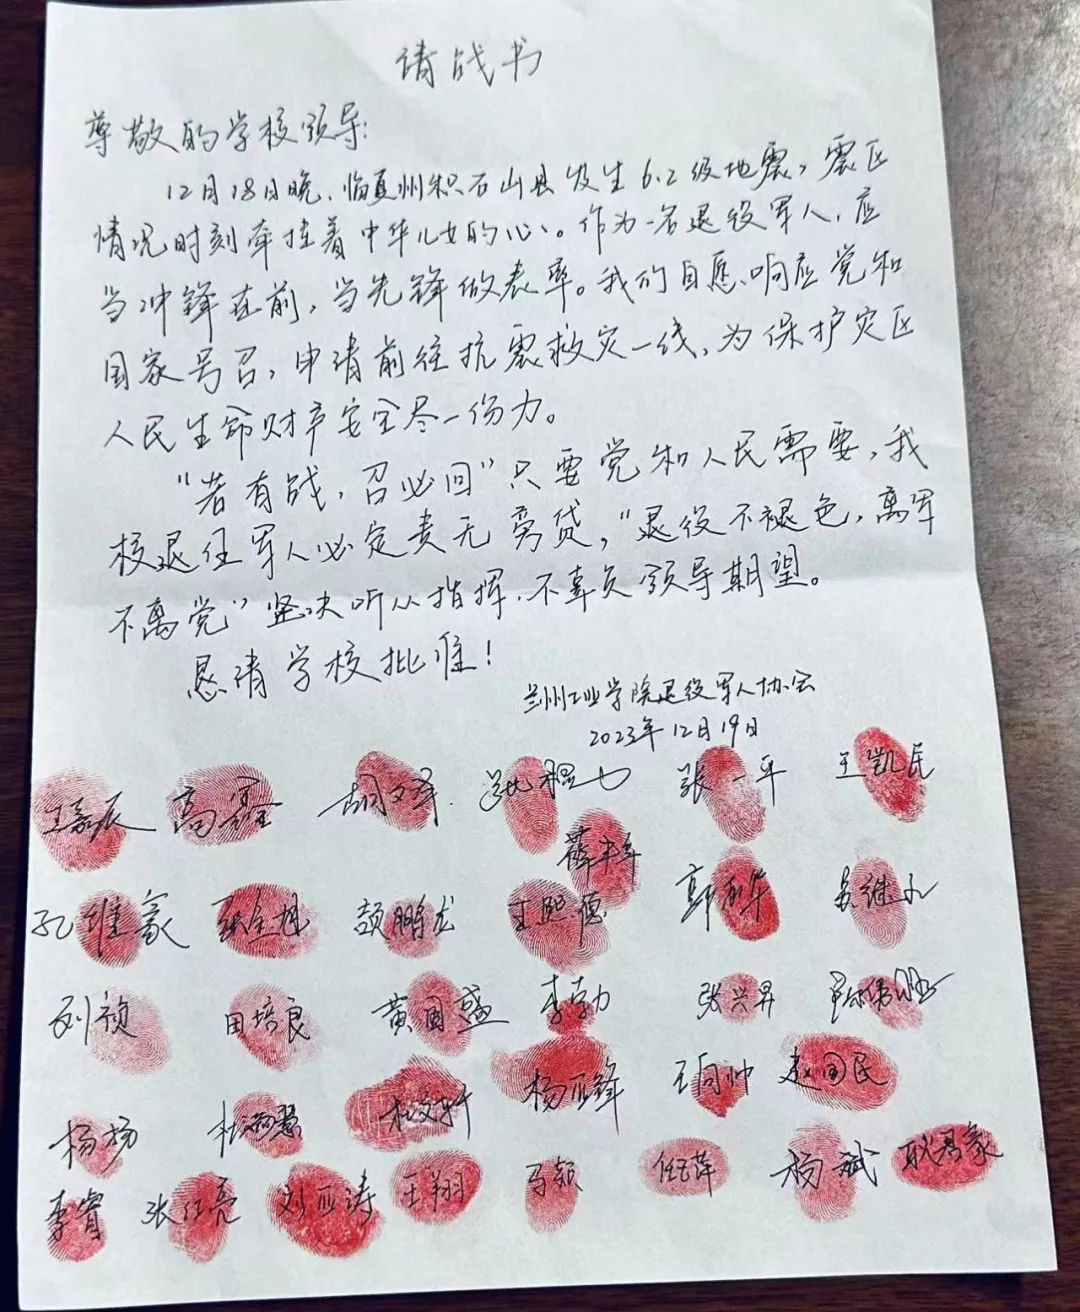 请战书
尊敬的学校领导:
12月18日晚,临夏州积石山县发生6.2级地震,震区
情况时刻牵挂着中华儿女的心。作为一名退役军人,应
当冲锋在前,当先锋做表率。我的自愿响应党和
国家号召,申请前往抗震救灾一线,为保护灾区
人民生命财产安全尽一份力。
“若有战,召必回”只要党和人民需要,我
校退伍军人必定责无旁贷,“退役不褪色,离军
不离党”坚决听从指挥,不辜负领导期望。
恳请学校批准!
兰州工业学院退役军人协会
2023年12月19日
王嘉辰 高鑫 张一平 王凯民
孔维豪 颉鹏龙 王熙德 郭利华
刘祯 田培良 黄国盛 李学力 张兴昇
杨扬 杜文轩 杨亚锋 王向帅 赵国民
李睿 张仁亮 刘亚涛 王翔 马颖 任玉萍 杨斌 耿君豪